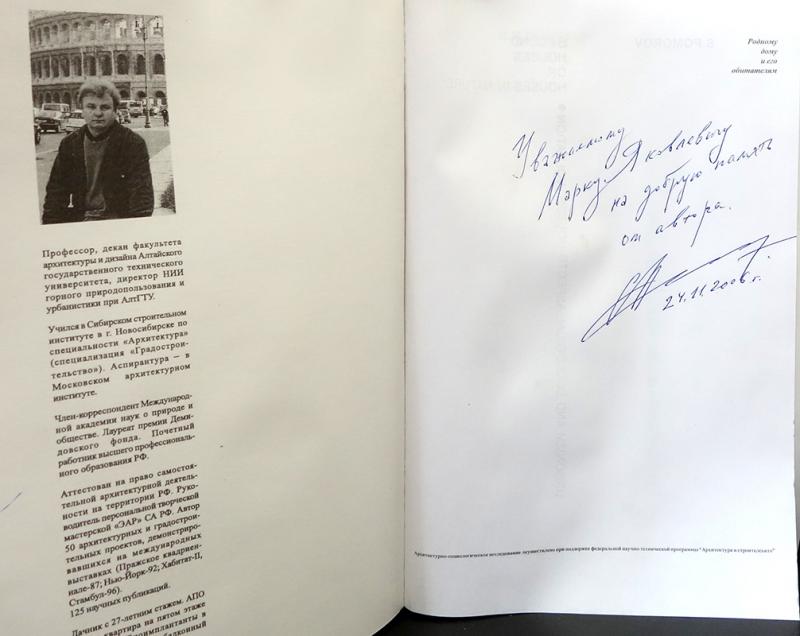 Профессор, декан факультета
архитектуры и дизайна Алтайского
государственного технического
университета, директор НИИ
горного природопользования и
урбанистики при АлтГТУ.
Учился в Сибирском строительном
институте в г. Новосибирске по
специальности «Архитектура»
(специализация «Градострои-
тельство»). Аспирантура – в
Московском архитектурном
институте.
Член-корреспондент Международ-
ной академии наук о природе и
обществе. Лауреат премии Деми-
довского фонда. Почетный
работник высшего профессиональ-
ного образования РФ.
Аттестован на право самостоя-
тельной архитектурной деятель-
ности на территории РФ. Руко-
водитель персональной творческой
мастерской «ЭАР» СА РФ. Автор
50 архитектурных и градострои-
тельных проектов, демонстриро-
вавшихся на международных
выставках (Пражское квадриен-
нале-87; Нью-Йорк-92; Хабитат-II,
Стамбул-96).
125 научных публикаций.
Дачник с 27-летним стажем. АПО
квартира на пятом этаже
Родному
дому
и его
обитателям
Уважаемому
Марку Яковлевичу
на добрую память
от автора.
24.11.2006 г.
Архитектурно-социологическое исследование осуществлено при поддержке федеральной научно-технической программы "Архитектура и строительство"
S POMOROV
SECOND
HOUSES
OR
HOUSES IN NATURE